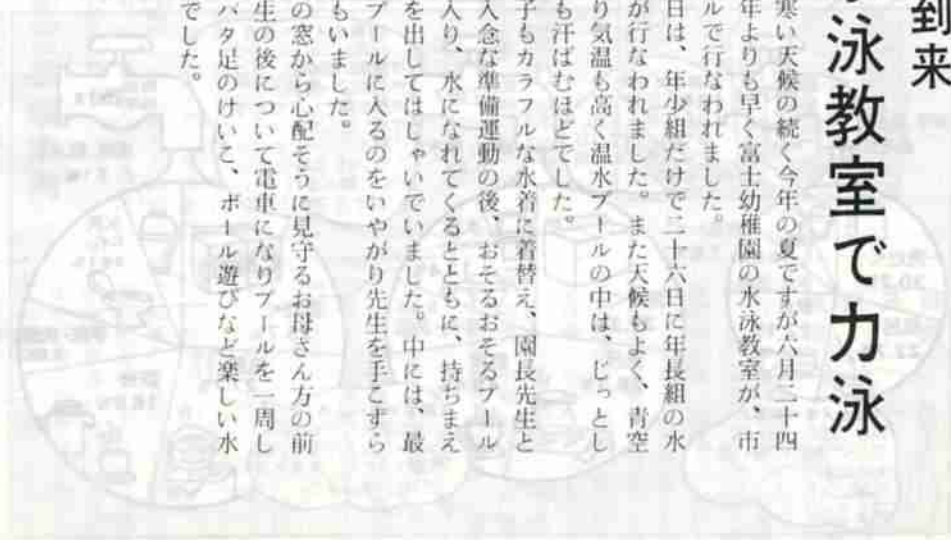 到来
泳教室で力泳
寒い天候の続く今年の夏ですが六月二十四
年よりも早く富士幼稚園の水泳教室が、市
ルで行なわれました。
日は、年少組だけで二十六日に年長組の水
が行なわれました。また天候もよく、青空
り気温も高く温水プールの中は、じっとし
も汗ばむほどでした。
子もカラフルな水着に着替え、園長先生と
入念な準備運動の後、おそるおそるプール
入り、水になれてくるとともに、持ちまえ
を出してはしゃいでいました。中には、最
プールに入るのをいやがり先生を手こずら
もいました。
の窓から心配そうに見守るお母さん方の前
生の後について電車になりプールを一周し
バタ足のけいこ、ボール遊びなど楽しい水
でした。